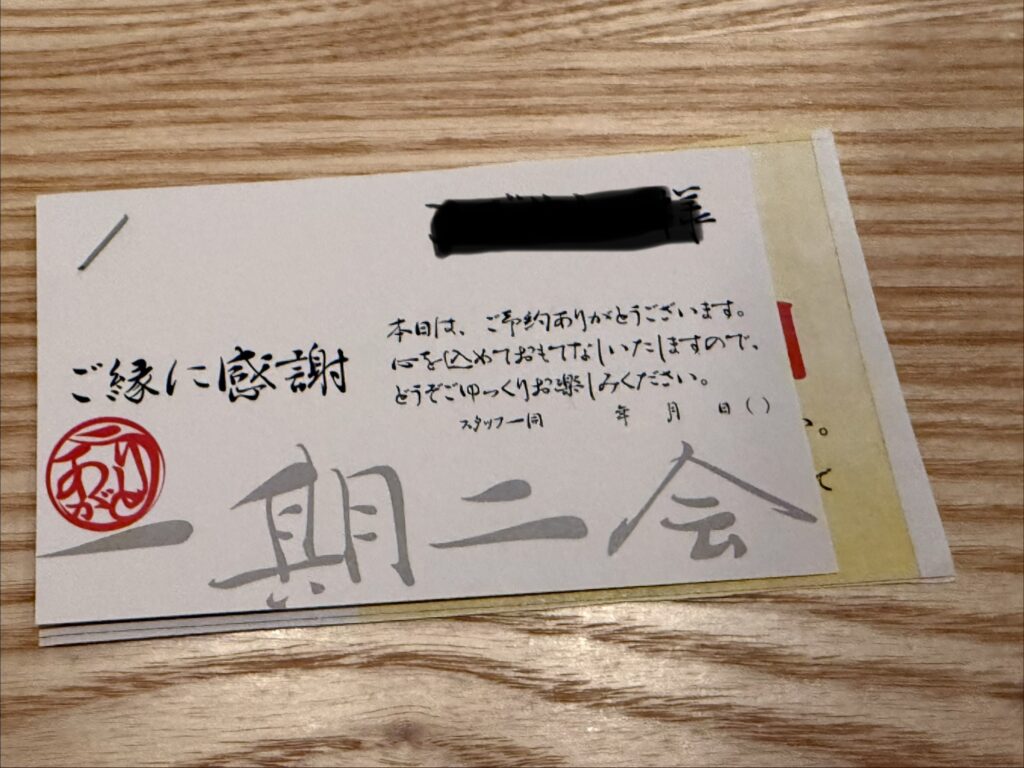 本日は、ご予約ありがとうございます。
心を込めておもてなしいたしますので、
どうぞごゆっくりお楽しみください。
スタッフ一同 年 月 日( )
ご縁に感謝
一期二会